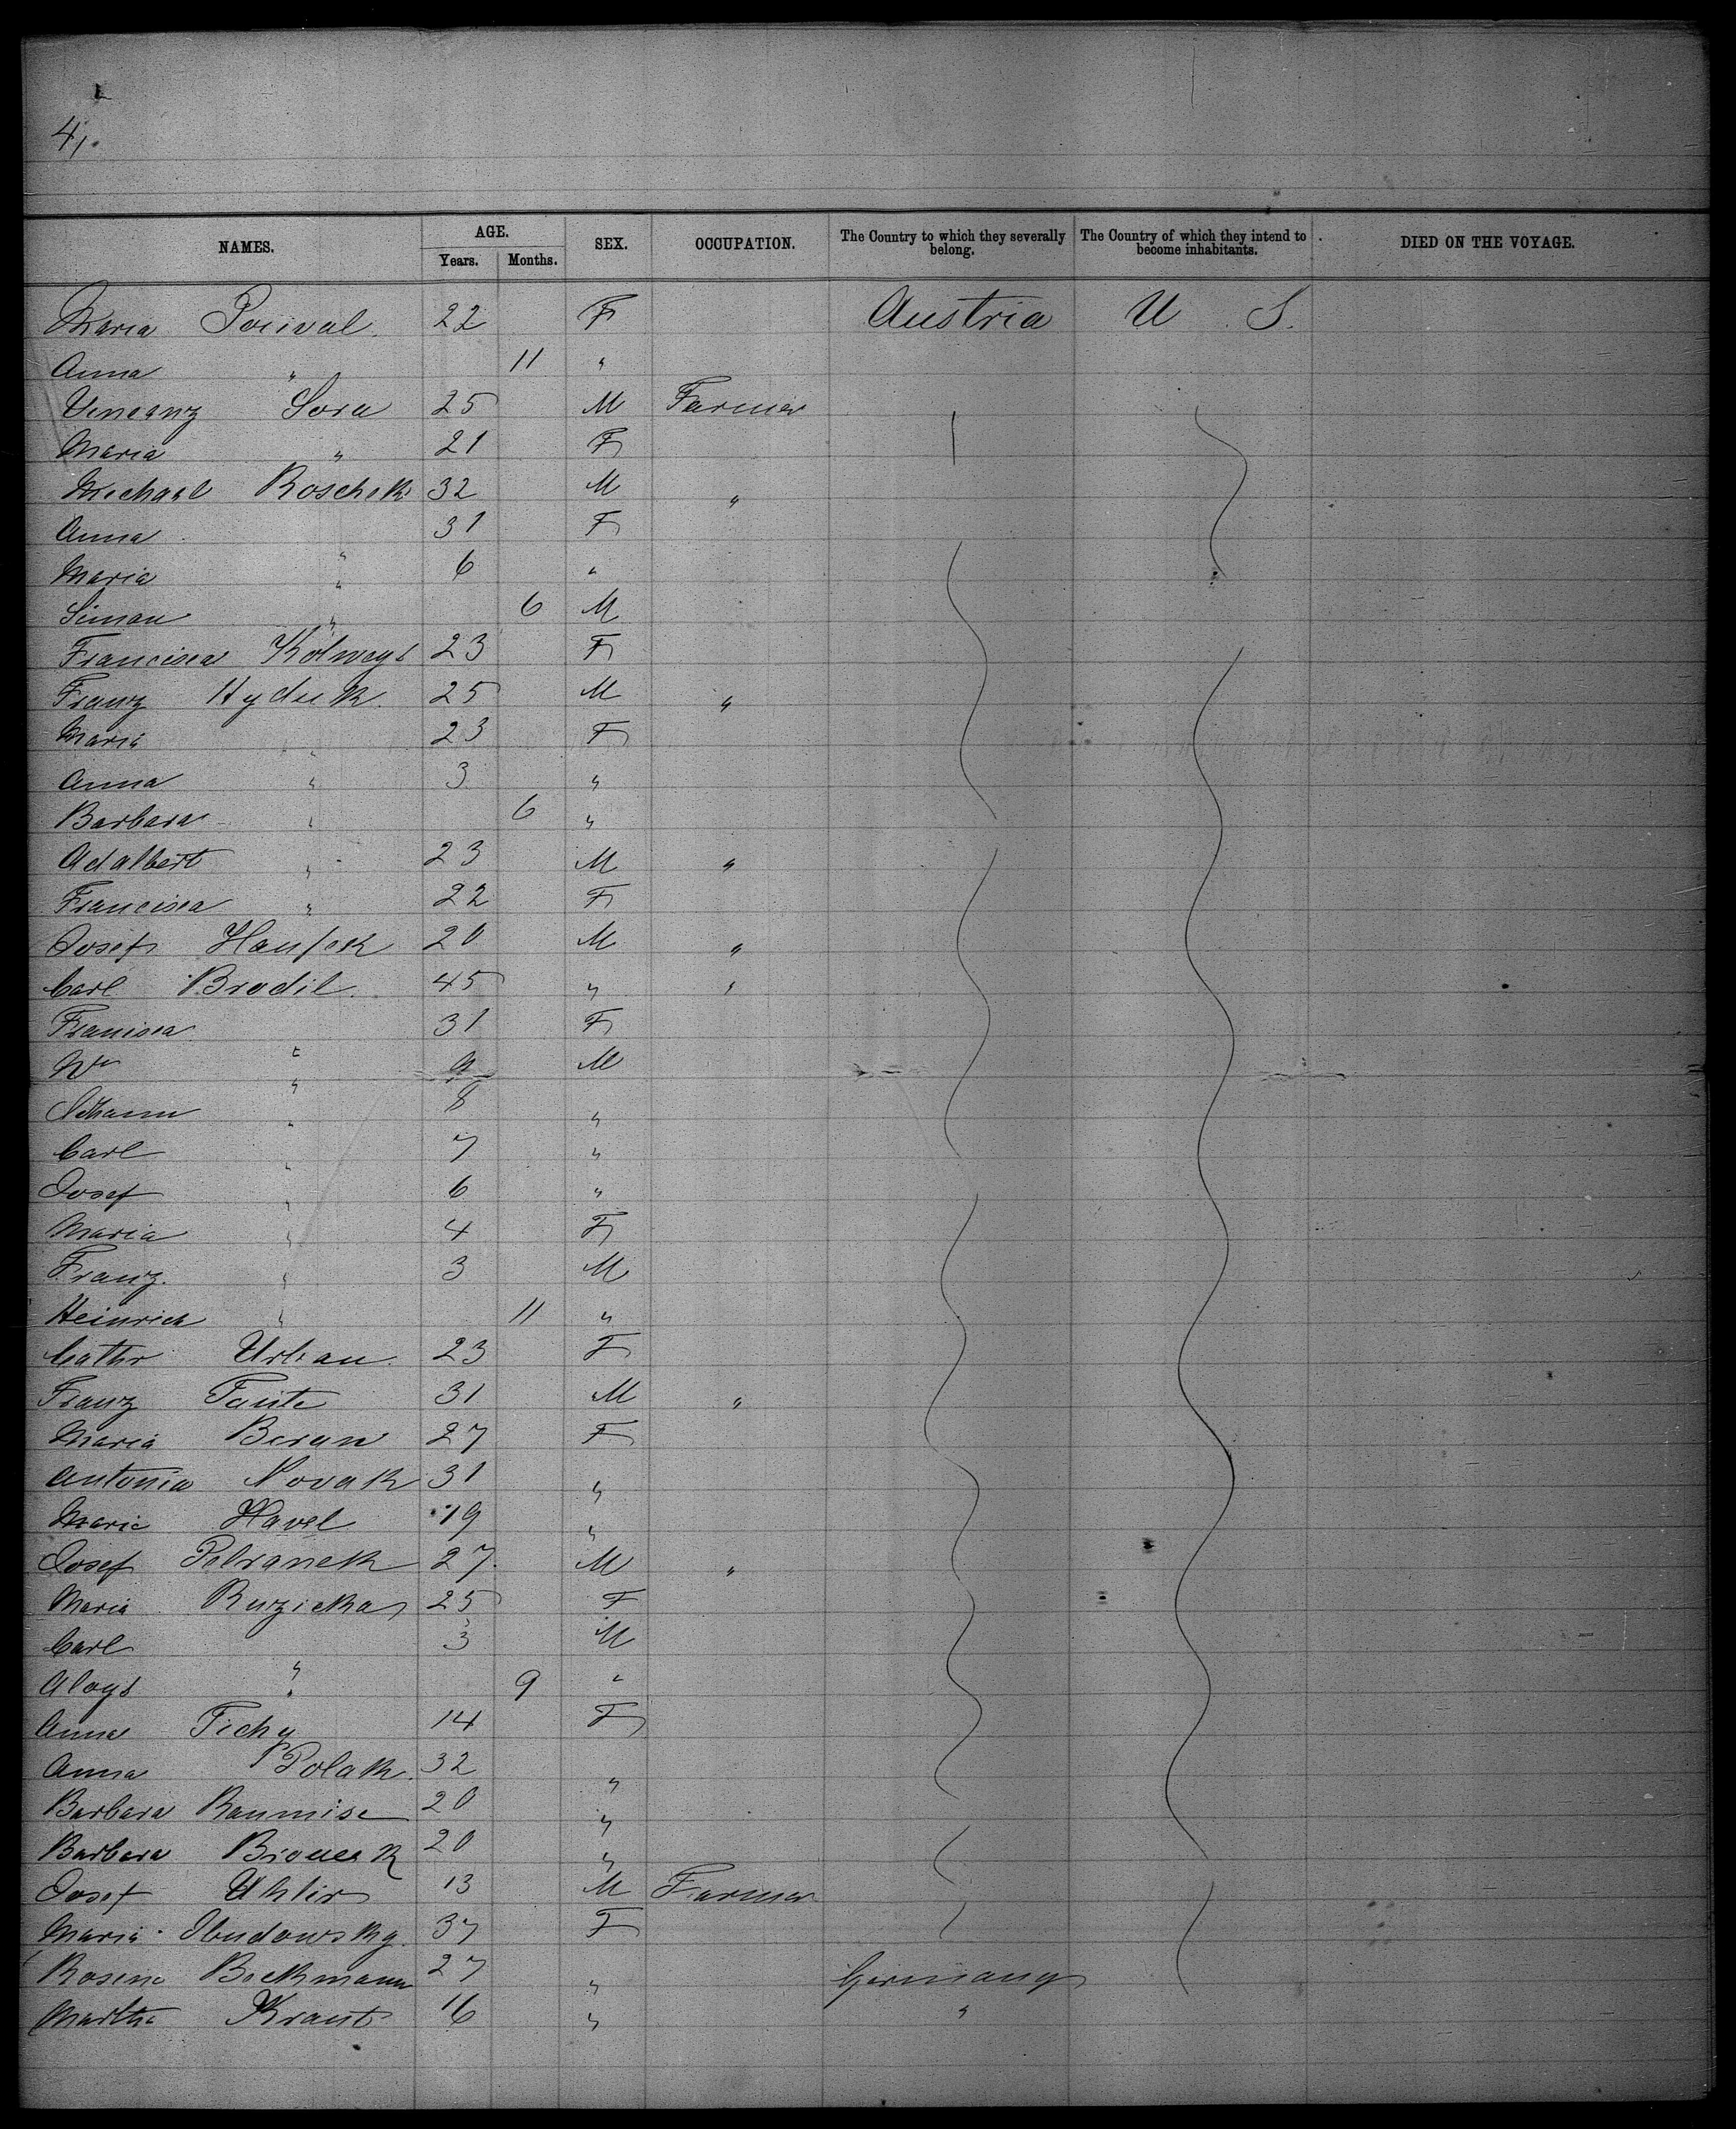 4,.
NAMES. AGE. SEX. OCCUPATION. The Country to which they severally belong. The Country of which they intend to become inhabitants. DIED ON THE VOYAGE.
Years. Months.
Maria 22 F Austria U. S.
Anna " 11 "
Sora 25 M Farmer
Maria " 21 F
Michael Roschek 32 M "
Anna " 31 F
Maria " 6 "
Simon " 6 M
Francisca Kolweys 23 F
Franz Hyduk 25 M "
Maria " 23 F
Anna " 3 "
Barbara " 6 "
Adalbert " 23 M "
Francisca " 22 F
Josef 20 M "
Carl Brodil 45 " "
Franisca " 31 F
" 9 M
Johann " 8 "
Carl " 7 "
Josef " 6 "
Maria " 4 F
Franz " 3 M
Heinrich " 11 "
Cathr Urban 23 F
Franz 31 M "
Maria Beran 27 F
Antonia Novak 31 "
Marie Havel 19 "
Josef Petranek 27 M "
Maria Ruzicka 25 F
Carl " 3 M
Aloys " 9 "
Anna Tichy 14 F
Anna Polak 32 "
Barbara 20 "
Barbara 20 "
Josef Uhlir 13 M Farmer
Maria 37 F
Rosine Beckmann 27 " Germany
Martha Kraut 16 " "